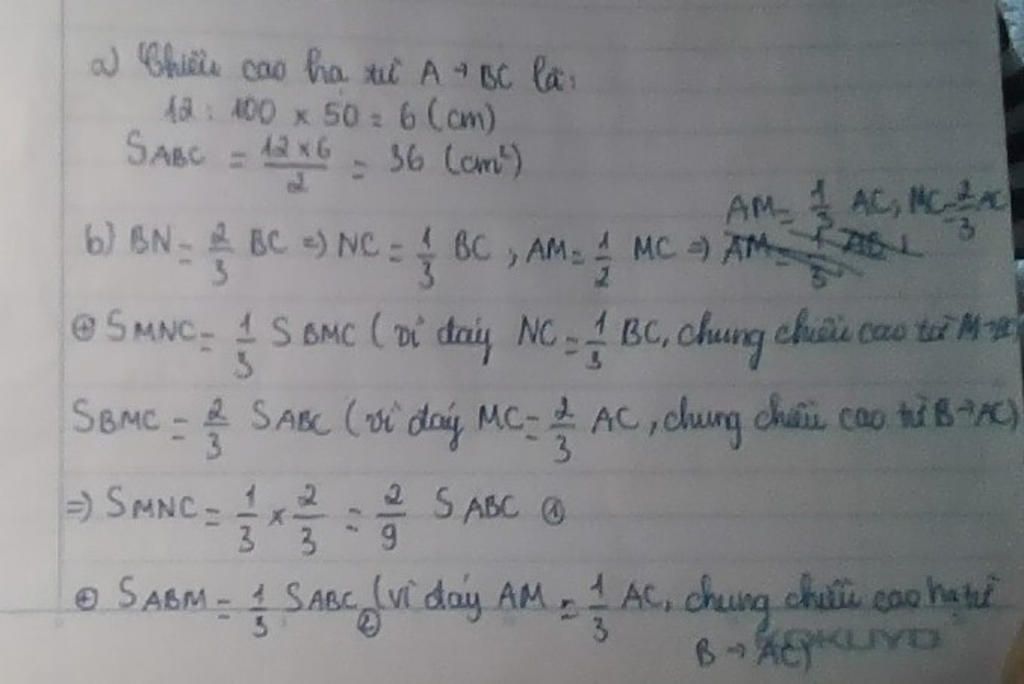 a) Chiều cao hạ từ A → BC là:
12 : 100 × 50 = 6 (cm)
SABC = 12×6/2 = 36 (cm²)
AM = 1/3 AC, MC = 2/3 AC
b) BN = 2/3 BC => NC = 1/3 BC, AM = 1/2 MC =>
⊕ SMNC = 1/3 SBMC (vì đáy NC = 1/3 BC, chung chiều cao từ M →
SBMC = 2/3 SABC (vì đáy MC = 2/3 AC, chung chiều cao từ B → AC)
=> SMNC = 1/3 × 2/3 = 2/9 SABC ①
⊕ SABM = 1/3 SABC ② (vì đáy AM = 1/3 AC, chung chiều cao hạ từ
B → AC)
KOKUYO